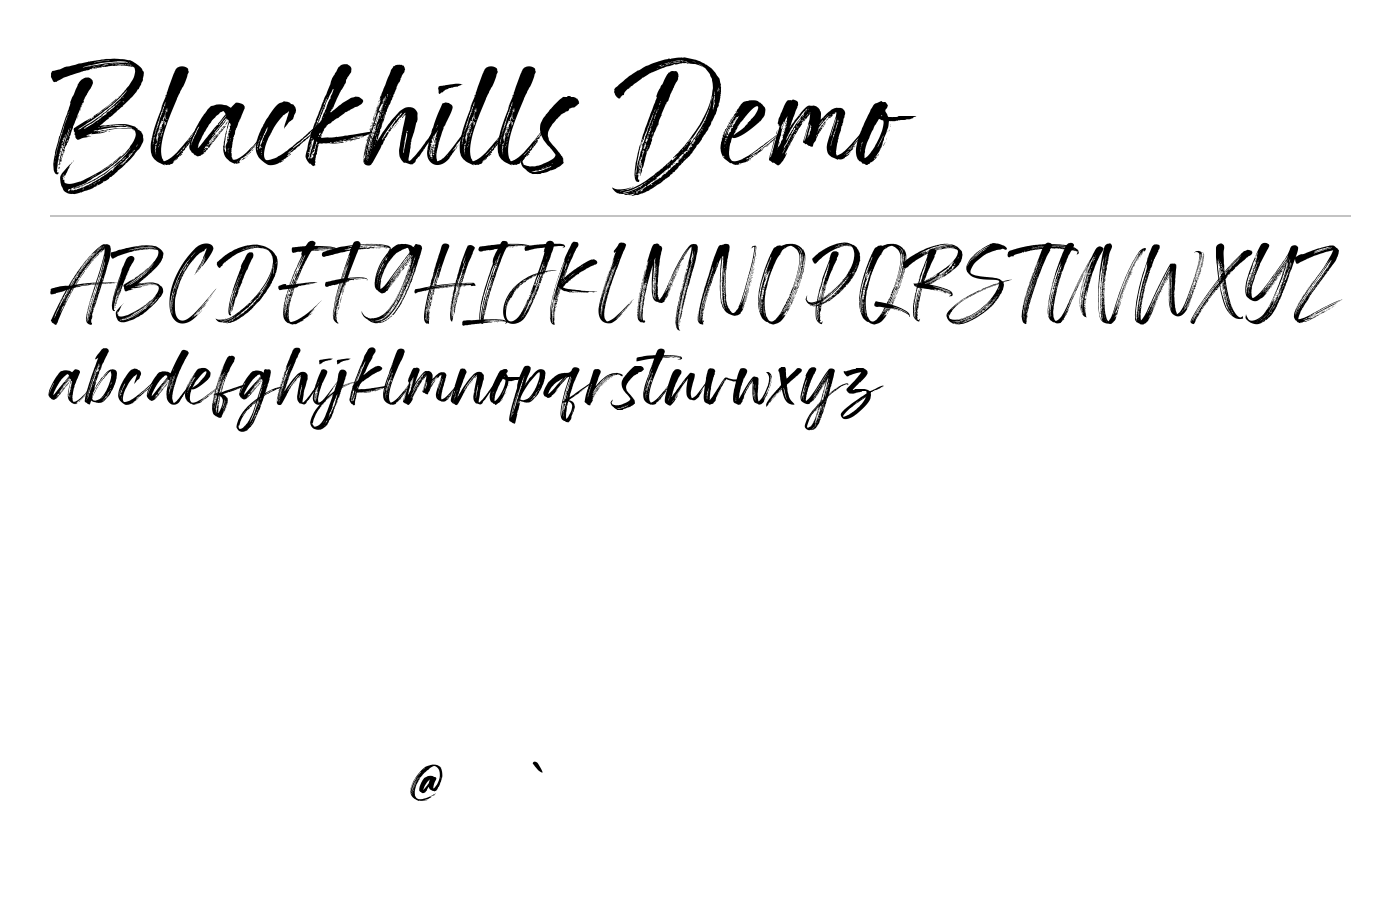 Blackhills Demo
ABCDEFGHIJKLMNOPQRSTUVWXYZ
abcdefghijklmnopqrstuvwxyz
@ `